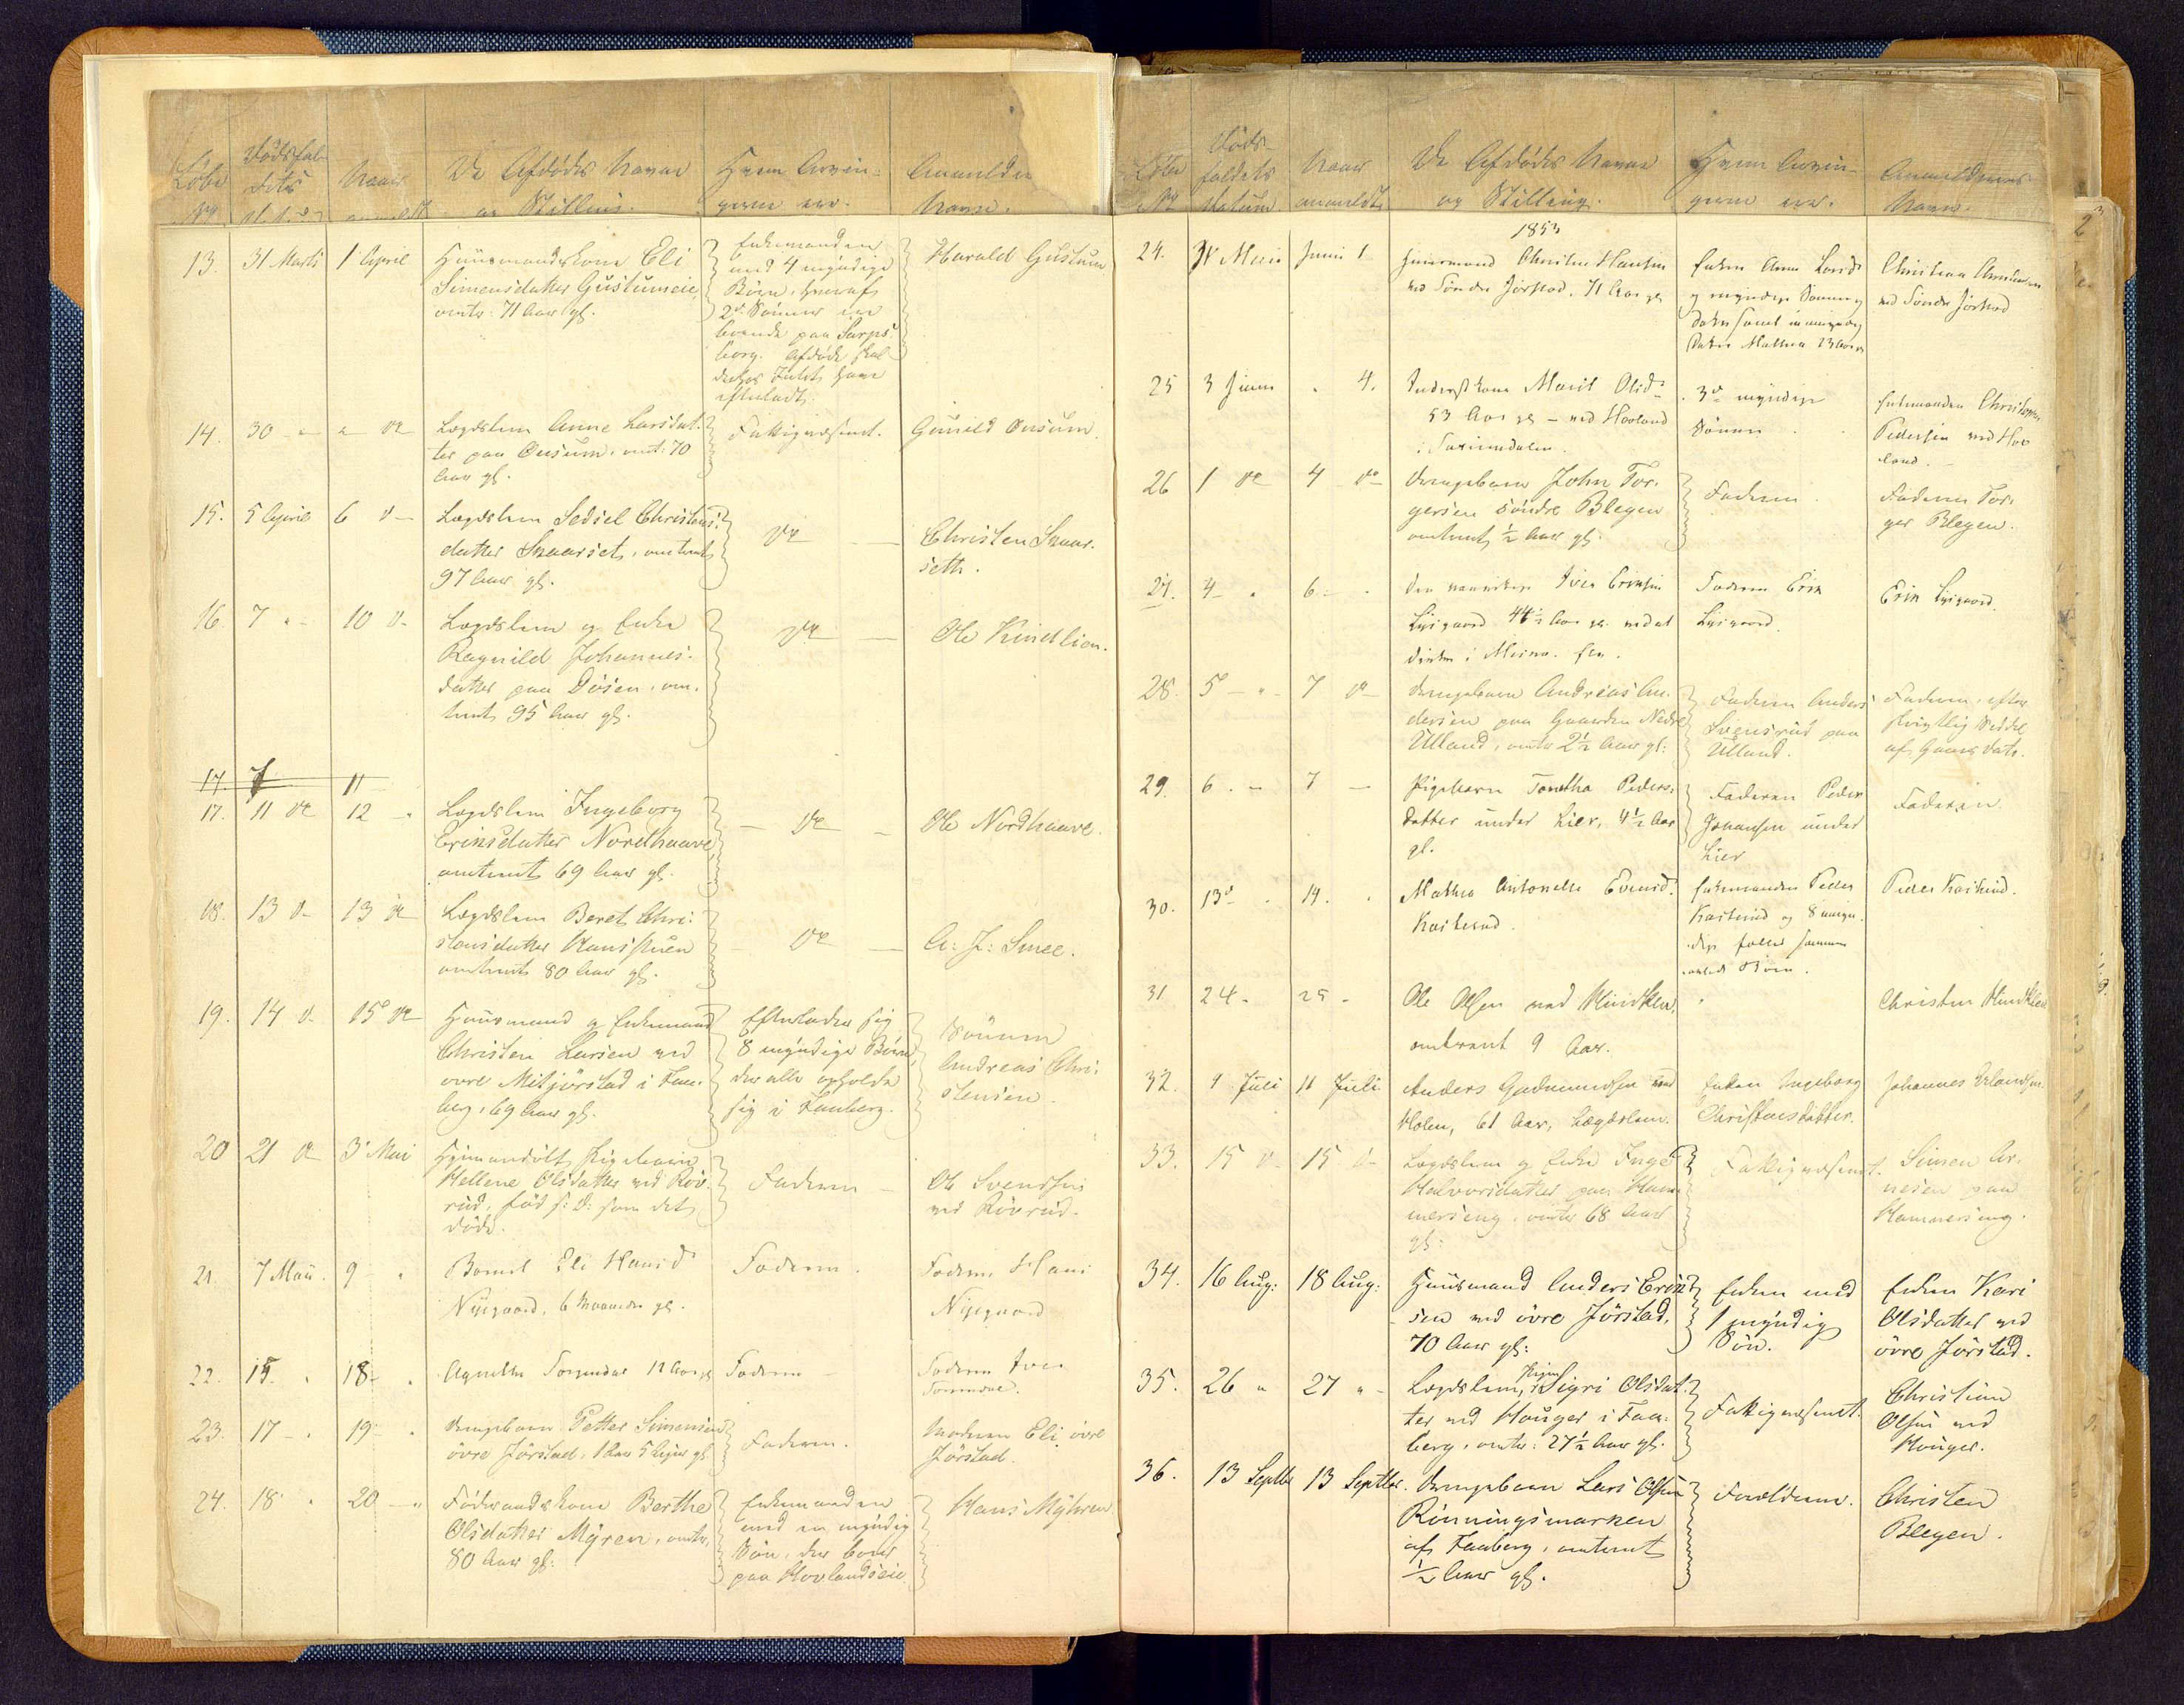 Løbe No
Dødsfaldets
Naar anmeldt
De Afdødes Navne og Stilling.
Hvem Arvingerne ere.
Anmelder Navn.
13.
31 Marts
1 April
Huusmandskone Eli
Simensdatter Gustumeie,
omtr: 71 Aar gl.
Enkemanden
med 4 myndige
Børn, hvoraf
2de Sønner ere
boende paa Sarps-
borg. Afdøde skal
have
efterladt.
Harald Gustum
14.
30
do
Lægdslem Anne Larsdat-
ter paa Onsum, omt: 70
Aar gl.
Fattigvæsenet.
Gunild Onsum.
15.
5 April
6 d
Lægdslem Sedsel Christens-
datter Skaarset, omtrent
97 Aar gl.
do
Christen Skaar-
seth.
16
7
10 d
Lægdslem og Enke
Ragnild Johannes-
datter paa Døsen, om-
trent 95 Aar gl.
do
Ole Kindlien.
17.
7
11
17.
11 do
12
Lægdslem Ingeborg
Eriksdatter Nordhaave
omtrent 69 Aar gl.
do
Ole Nordhaave.
18.
13 d
13 do
Lægdslem Beret Chri-
stensdatter Hansstuen
omtrent 80 Aar gl.
do
A: J: Smee.
19.
14 d
15 do
Huusmand og Enkemand
Christen Larsen ved
øvre Mitjørstad i Faa-
berg, 69 Aar gl.
Efterlader sig
8 myndige Børn,
der alle opholde
sig i Faaberg.
Sønnen
Andreas Chri-
stensen.
20
21 do
3 Mai
Hjemmedøbt Pigebarn
Hellene Olsdatter ved Røv-
rud, fød s: D: som det
døde.
Faderen
Ole Svendsen
ved Røvrud.
21.
7 Mai
9
Barnet Eli Hansd.
Nysgaard, 6 Maaneder gl.
Faderen.
Faderen Hans
Nysgaard
22.
15.
18
Agnethe 12 Aar gl
Faderen
Faderen Iver
23.
17
19
Drengebarn Petter Simensen
øvre Jørstad, 1 Aar 5 Uger gl
Faderen.
Moderen Eli øvre
Jørstad.
24.
18
20
Føderaadskone Berthe
Olsdatter Myren, omtr,
80 Aar gl:
Enkemanden
med en myndig
Søn, der boer
paa Hovlandseie.
Hans Myhren
Løbe No
Døds-
faldets
Datum.
Naar
anmeldt
De Afdødes Navne
og Stilling.
Hvem Arvin-
gerne ere.
Anmeldernes
Navn.
1853
24.
31 Mai
Juni 1
Huusmand Christen Hansen
ved Søndre Jørstad, 71 Aar gl
Enken Anne Larsd.
og myndige Sønner og
Datter samt
Datter Mathea 23 Aar gl
Christian Christensen
ved Søndre Jørstad
25
3 Juni
4.
Inderstkone Marit Olsd.
53 Aar gl – ved Hovland
i Saxumdalen.
3de myndige
Sønner
Enkemanden Christopher
Pedersen ved Hov-
land.
26
1 do
4 do
Drengebarn John Tor-
gersen søndre Blegen
omtrent ½ Aar gl.
Faderen.
Faderen Tor-
ger Blegen.
27.
4
6
Iver Eriksen
Lysgaard 44½ Aar gl. ved at
drukne i Mesna.
Faderen Erik
Lysgaard.
Erik Lysgaard.
28.
5
7 d
Drengebarn Andreas An-
dersen paa Gaarden Nedre
Ulland, omtr 2½ Aar gl:
Faderen Anders
Svensrud paa
Ulland.
Faderen, efter
skriftlig Seddel
af Gaars Dato.
29.
6.
7
Pigebarn Tonetha Peders-
datter under Lier, 4½ Aar
gl.
Faderen Peder
Johansen under
Lier
Faderen.
30.
13
14.
Mathea Antonette Evensd.
Kastrud.
Enkemanden Peder
Kastrud og 8 umyn-
dige fælles sammen
avlede Børn.
Peder Kastrud.
31
24
25
Ole Olsen ved Kindlien,
omtrent 9 Aar.
Christen Kindlien
32.
9 Juli
11 Juli
Anders Gudmundsen ved
Holen, 61 Aar, Lægdslem.
Enken Ingeborg
Christensdatter.
Johannes Erlandsen
33.
15 d
15 d
Lægdslem og Enke Inge
Halvorsdatter paa Ham-
merseng, omtr 68 Aar
gl:
Fattigvæsenet.
Simen Ar-
nesen paa
Hammerseng.
34.
16 Aug:
18 Aug:
Huusmand Anders Erik-
sen ved øvre Jørstad,
70 Aar gl:
Enken med
1 myndig
Søn.
Enken Kari
Olsdatter ved
øvre Jørstad.
35.
26 "
27 "
Lægdslem, Pigen Sigri Olsdat-
ter ved Houger i Faa-
berg, omtr: 27½ Aar gl.
Fattigvæsenet.
Christian
Olsen ved
Houger.
36.
13 Septbr
13 Septbr.
Drengebarn Lars Olsen
Rønningsmarken
af Faaberg, omtrent
½ Aar gl.
Forældrene.
Christen
Blegen.